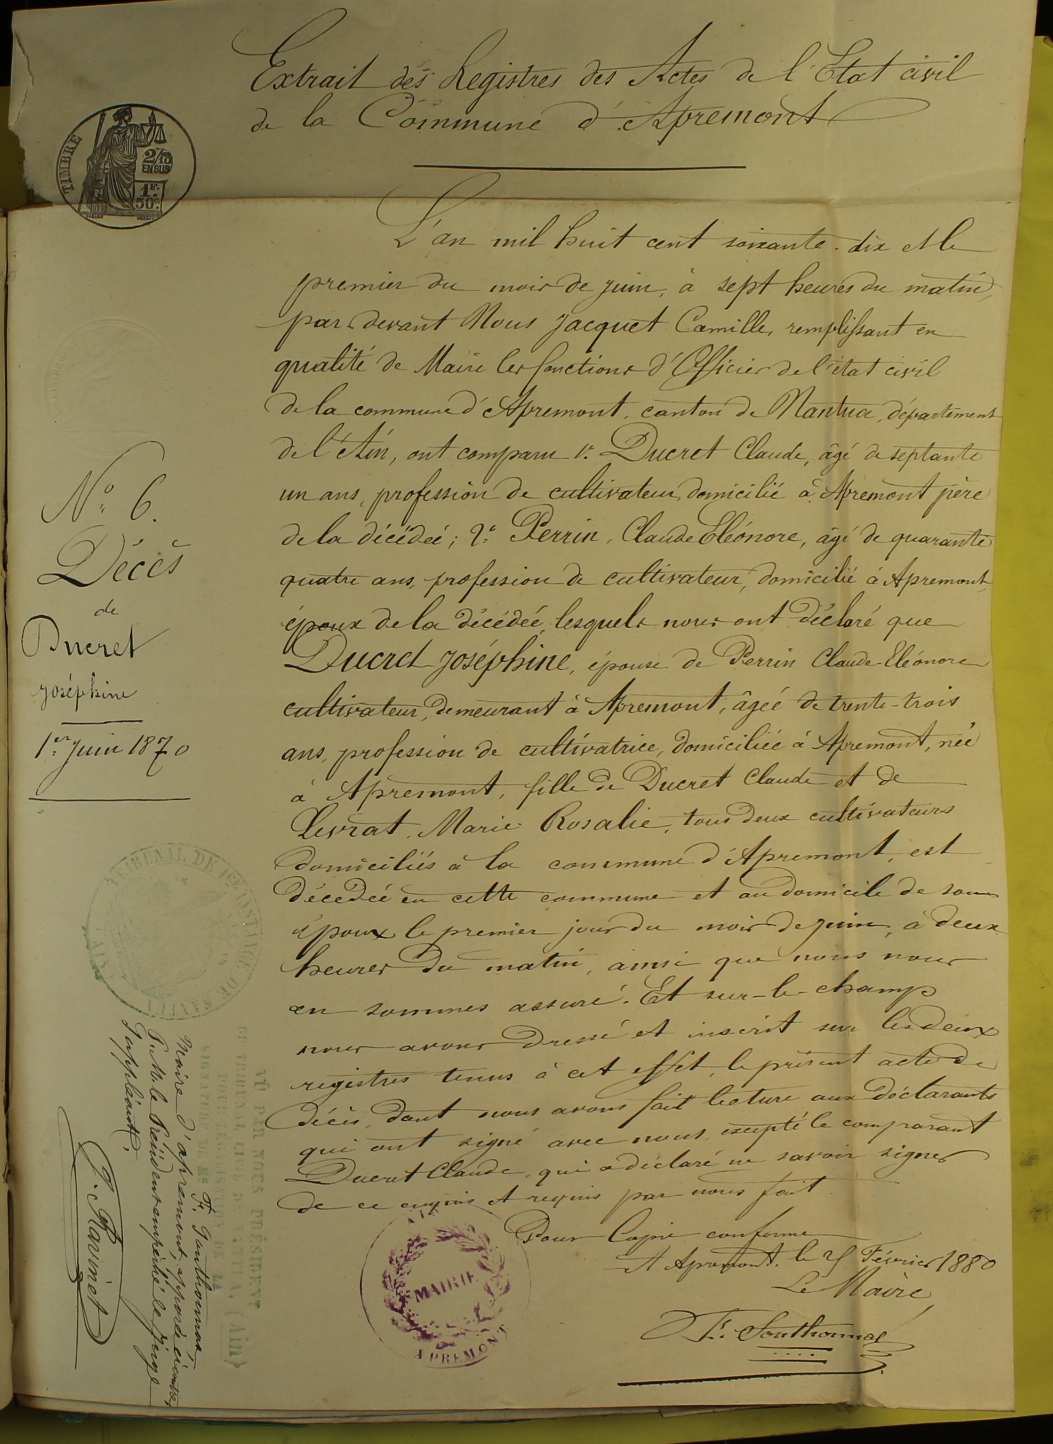 Extrait des Registres des Actes de l'Etat civil
de la Commune d'Apremont
TIMBRE
2/10
EN SUS
1 Fr.
50 c.
L'an mil huit cent soixante-dix et le
premier du mois de juin, à sept heures du matin,
par devant Nous Jacquet Camille, remplissant en
qualité de Maire les fonctions d'Officier de l'état civil
de la commune d'Apremont, canton de Nantua, département
de l'Ain, ont comparu 1° Ducret Claude, âgé de septante
un ans, profession de cultivateur, domicilié à Apremont père
de la décédée; 2° Perrin, Claude Eléonore, âgé de quarante
quatre ans, profession de cultivateur, domicilié à Apremont,
époux de la décédée, lesquels nous ont déclaré que
Ducret Joséphine, épouse de Perrin Claude Eléonore
cultivateur, demeurant à Apremont, âgée de trente-trois
ans, profession de cultivatrice, domiciliée à Apremont, née
à Apremont, fille de Ducret Claude et de
Levrat Marie Rosalie, tous deux cultivateurs
domiciliés à la commune d'Apremont, est
décédée en cette commune et au domicile de son
époux le premier jour du mois de juin, à deux
heures du matin, ainsi que nous nous
en sommes assuré. Et sur-le-champ
nous avons dressé et inscrit sur les deux
registres tenus à cet effet, le présent acte de
décès, dont nous avons fait lecture aux déclarants
qui ont signé avec nous, excepté le comparant
Ducret Claude, qui a déclaré ne savoir signer
de ce enquis et requis par nous fait.
Pour Copie conforme
A Apremont, le 25 Février 1880
Le Maire,
MAIRIE
APREMONT
N° 6.
Décès
de
Ducret
Joséphine
1er Juin 1870
TRIBUNAL DE 1ère INSTANCE DE NANTUA
VU PAR NOUS PRÉSIDENT
(Ain)
Maire d'Apremont, apposée ci-contre,
P. M. le Président empêché le Juge
suppléant,